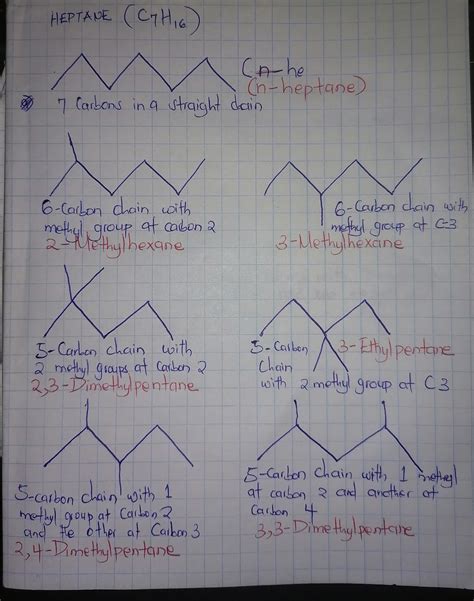 HEPTANE (C7H16)
Cn-he
(n-heptane)
7 Carbons in a straight chain
6-Carbon chain with
methyl group at carbon 2
2-Methylhexane
6-Carbon chain with
methyl group at C-3
3-Methylhexane
5-Carbon chain with
2 methyl groups at Carbon 2
2,3-Dimethylpentane
5-Carbon
Chain
with 2 methyl group at C3
3-Ethylpentane
5-carbon chain with 1
methyl group at Carbon 2
and the other at Carbon 3
2,4-Dimethylpentane
5-Carbon chain with 1 methyl
at carbon 2 and another at
Carbon 4
3,3-Dimethylpentane